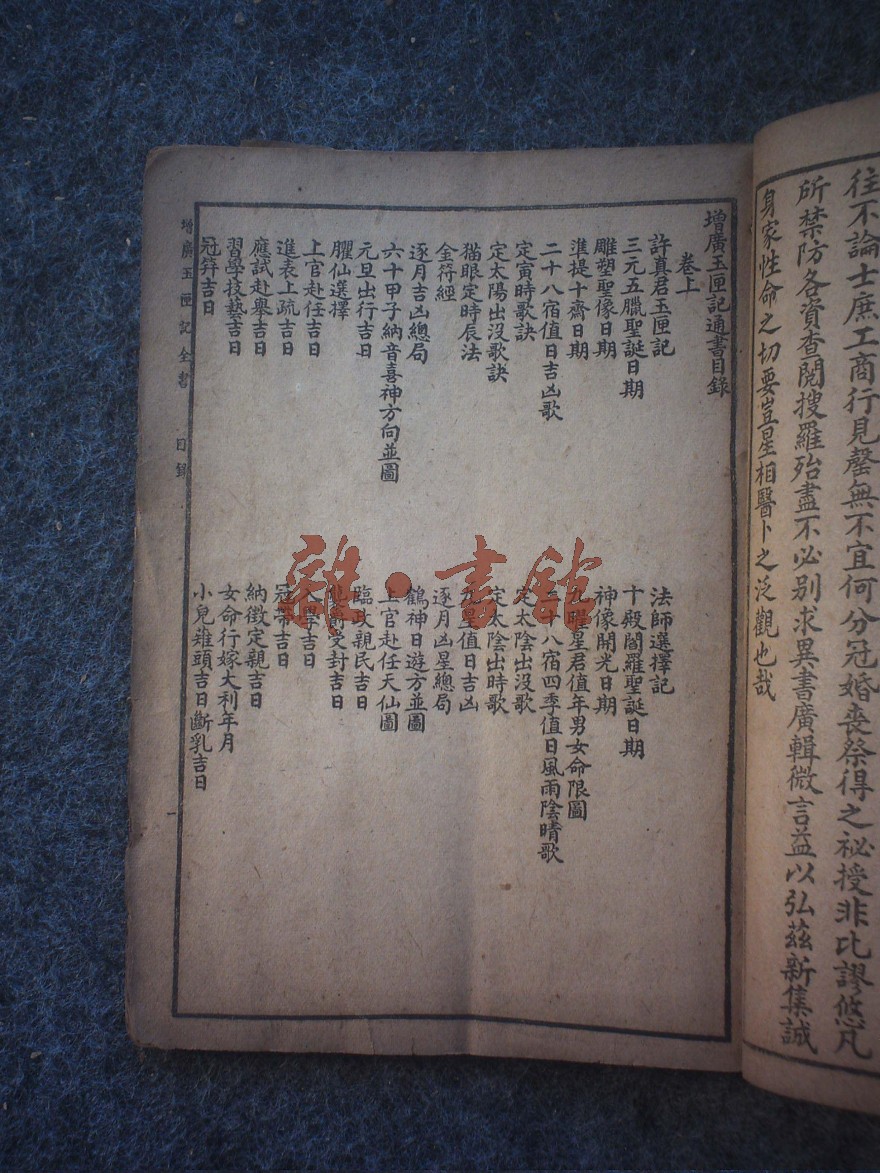 往不論士庶工商行見罄無不宜何分冠婚喪祭得之祕授非比謬悠凡
所禁防各資查閱搜羅殆盡不必別求異書廣輯微言益以弘茲新集誠
身家性命之切要豈星相醫卜之泛觀也哉
增廣玉匣記通書目錄
卷上
許真君玉匣記
法師選擇記
三元五臘聖誕日期
十殿閻羅聖誕日期
雕塑聖像日期
神像開光日期
準提十齋日期
九曜星君值年男女命限圖
二十八宿值日吉凶歌
二十八宿四季值日風雨陰晴歌
定寅時歌訣
定太陰出沒歌
定太陽出沒歌訣
定太陰出時歌
貓眼定時辰法
星值日吉凶
金符經
逐月凶星總局
逐月吉凶總局
鶴神日遊方並圖
六十甲子納音喜神方向並圖
上官赴任天仙圖
元旦出行吉日
臨政親民吉日
臞仙選擇
襲爵受封吉日
上官赴任吉日
入學吉日
進表上疏吉日
冠帶吉日
應試赴舉吉日
納徵定親吉日
習學技藝吉日
女命行嫁大利年月
冠笄吉日
小兒雉頭吉日斷乳吉日
增廣玉匣記全書
目錄
一
雜·書館